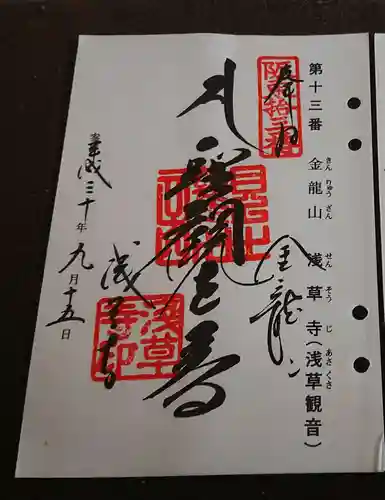 第十三番 金龍山 浅草寺(浅草観音)
きん りゅう ざん せん そう じ あさ くさ
奉拝
聖観世音
金龍山
浅草寺
平成三十年九月十五日
浅草寺印